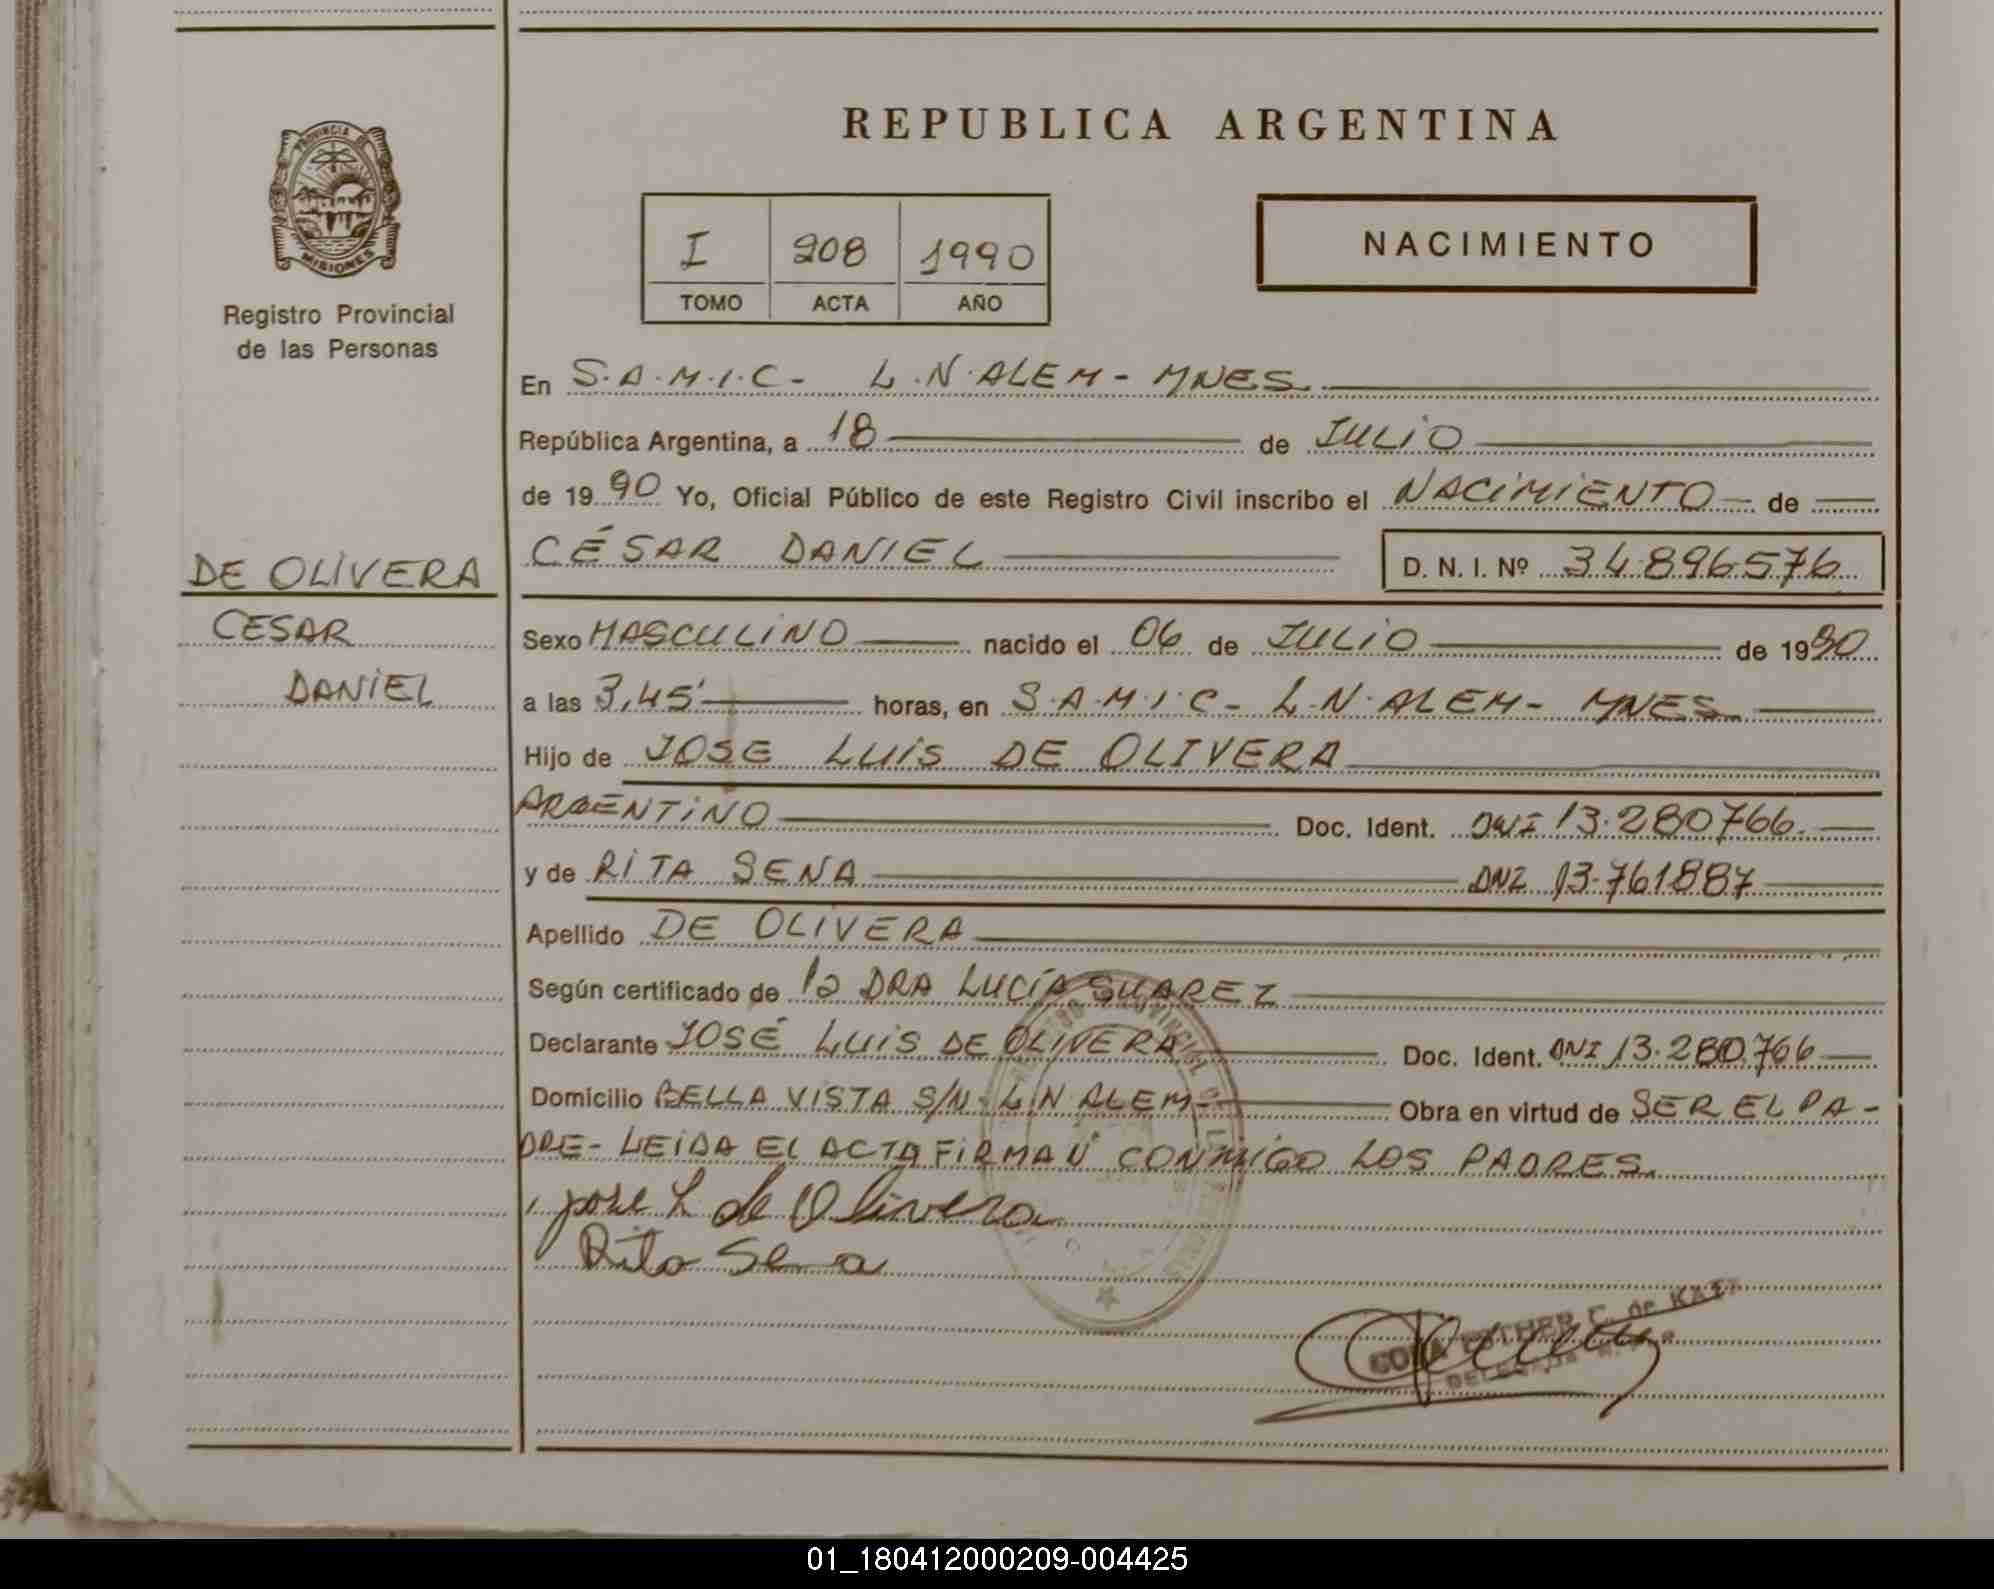 REPUBLICA ARGENTINA
PROVINCIA DE
MISIONES
Registro Provincial
de las Personas
I 208 1990
TOMO ACTA AÑO
NACIMIENTO
En S.A.M.I.C- L.N.ALEM- MNES
República Argentina, a 18 de JULIO
de 1990 Yo, Oficial Público de este Registro Civil inscribo el NACIMIENTO de
DE OLIVERA
CESAR
DANIEL
CÉSAR DANIEL D. N. I. Nº 34.896576
Sexo MASCULINO nacido el 06 de JULIO de 1990
a las 3,45' horas, en S.A.M.I.C- L.N.ALEM- MNES
Hijo de JOSE LUIS DE OLIVERA
ARGENTINO Doc. Ident. DNI 13.280766
y de RITA SENA DNI 13.761887
Apellido DE OLIVERA
Según certificado de la DRA LUCÍA SUAREZ
Declarante JOSÉ LUIS DE OLIVERA Doc. Ident. DNI 13.280766
Domicilio BELLA VISTA S/N- L.N ALEM- Obra en virtud de SER EL PA-
DRE- LEIDA EL ACTA FIRMAN CONMIGO LOS PADRES.
Jose L de Olivera
Rita Sena
ESTHER C. de
01_180412000209-004425